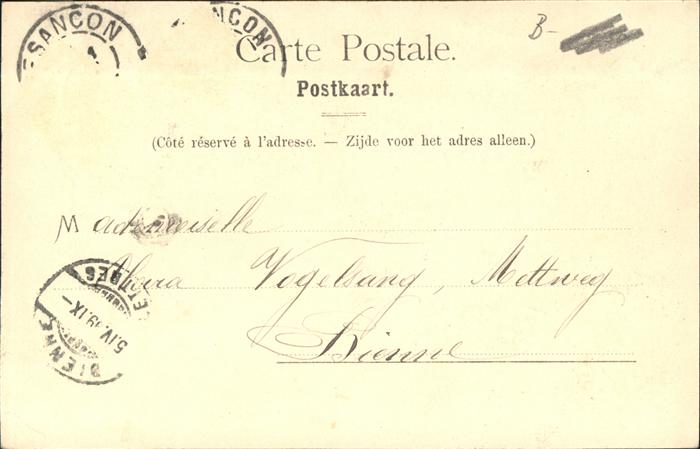 BESANÇON
BESANÇON
B-
Carte Postale.
Postkaart.
(Côté réservé à l'adresse. — Zijde voor het adres alleen.)
Mademoiselle
Vogelsang, Mettweg
Bienne
BIENNE
5.IV. IX-